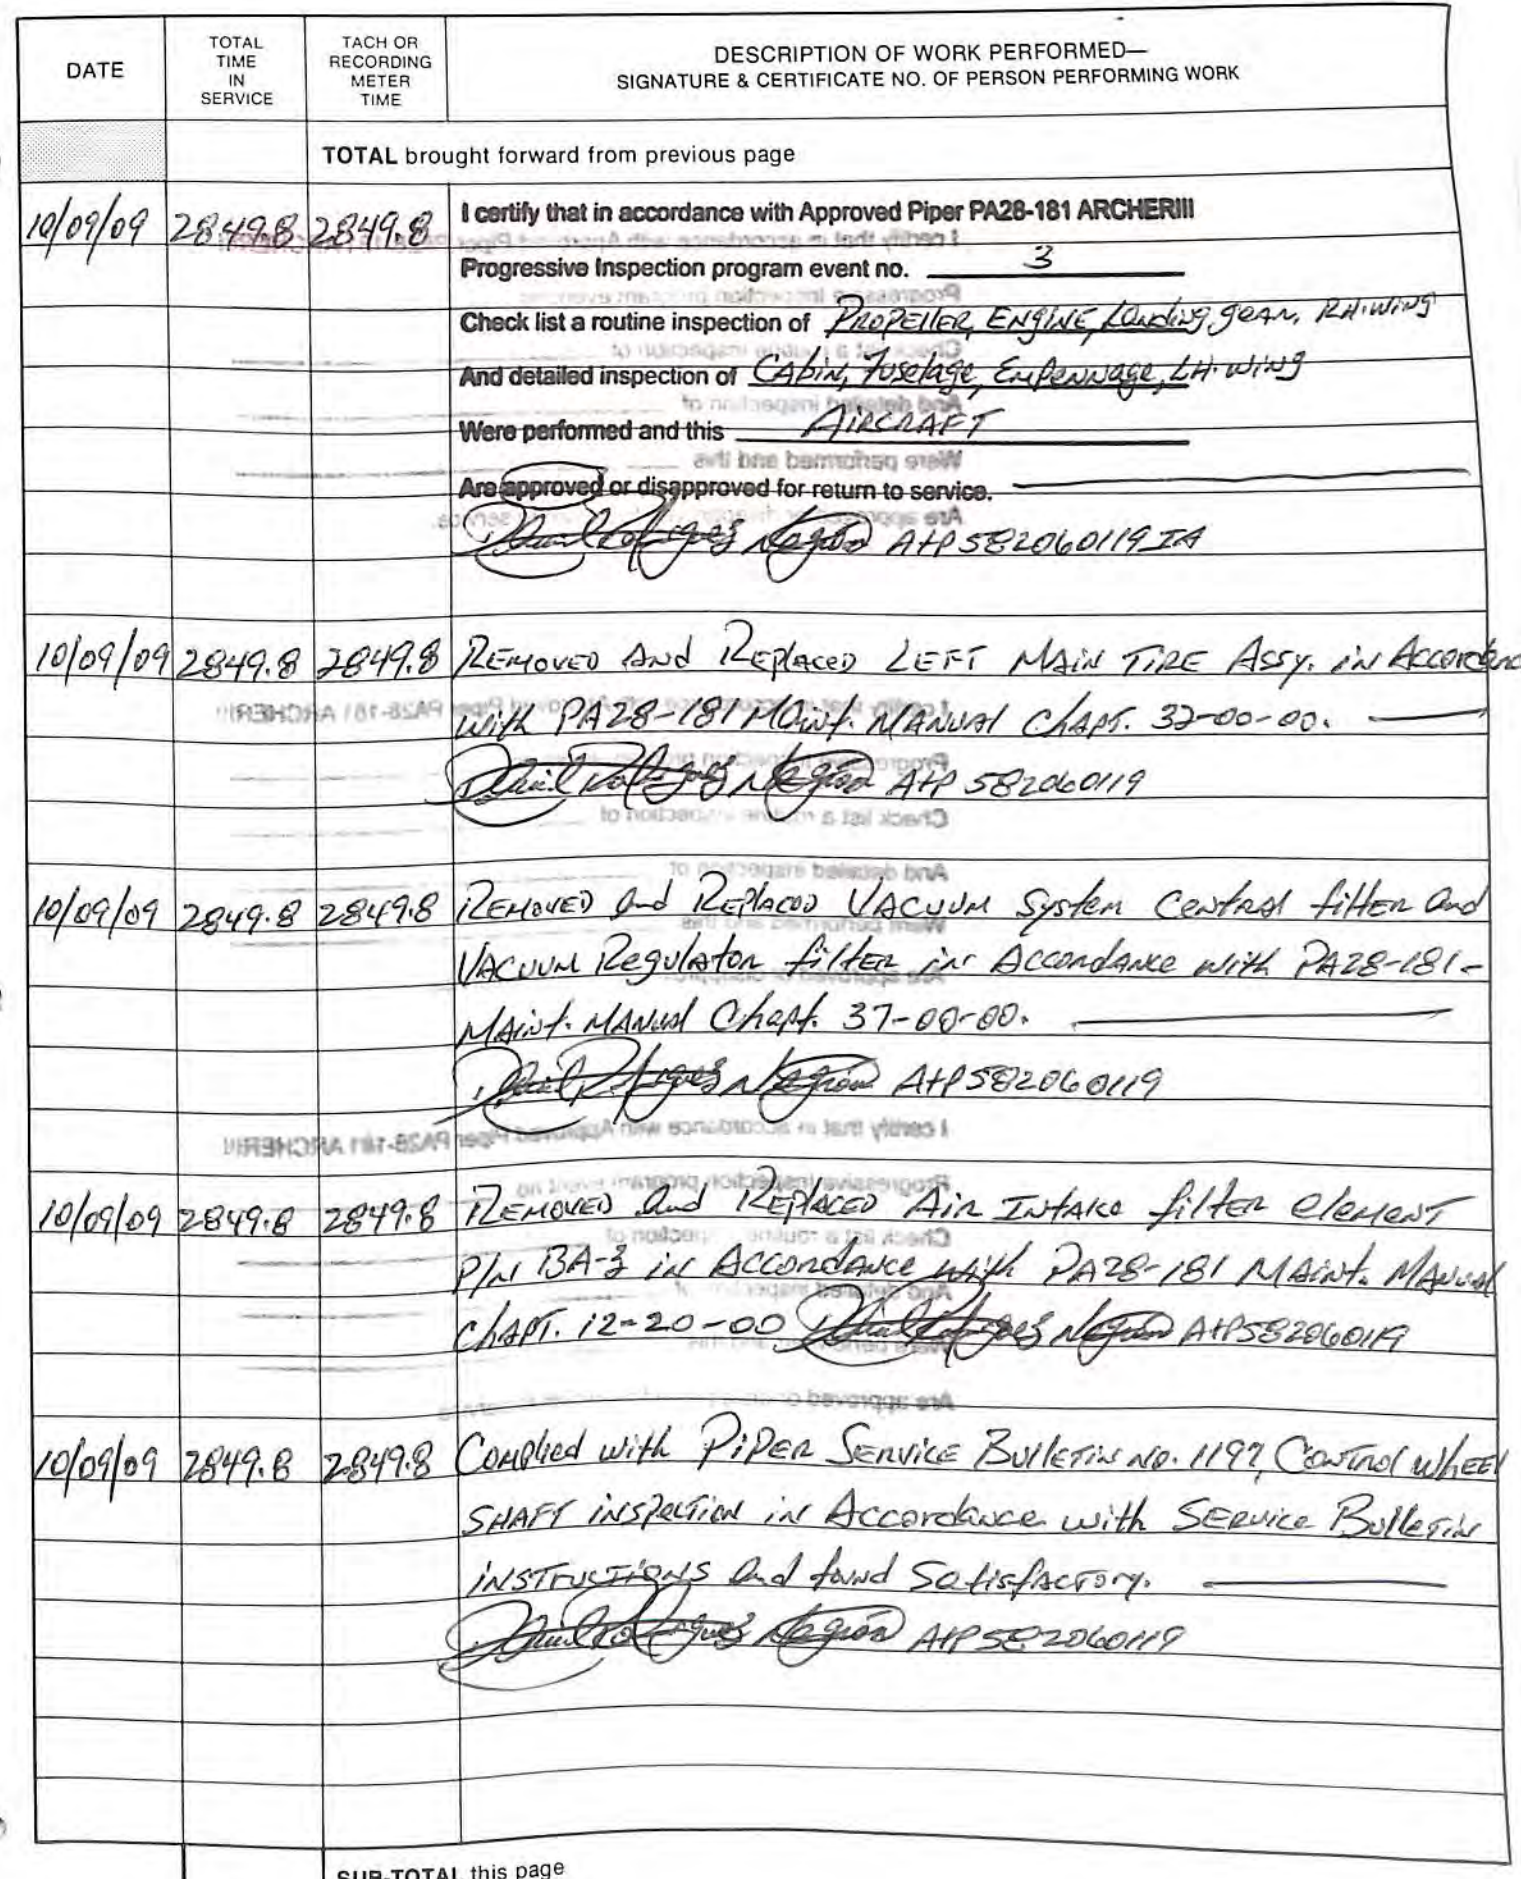 DATE TOTAL TIME IN SERVICE TACH OR RECORDING METER TIME DESCRIPTION OF WORK PERFORMED— SIGNATURE & CERTIFICATE NO. OF PERSON PERFORMING WORK
TOTAL brought forward from previous page
10/09/09 2849.8 2849.8 I certify that in accordance with Approved Piper PA28-181 ARCHERIII
Progressive Inspection program event no. 3
Check list a routine inspection of PROPELLER, ENGINE, Landing gear, RH. Wing
And detailed inspection of CABIN, Fuselage, Empennage, LH. Wing
Were performed and this AIRCRAFT
Are approved or disapproved for return to service.
A+P 582060119 IA
10/09/09 2849.8 2849.8 REMOVED AND REPLACED LEFT MAIN TIRE ASSY. IN Accordanc
with PA28-181 Maint. MANUAL CHAPT. 32-00-00.
A+P 582060119
10/09/09 2849.8 2849.8 REMOVED and REPLACED VACUUM System Central filter and
VACUUM Regulator filter in Accordance with PA28-181-
MAINT. MANUAL Chapt. 37-00-00.
A+P 582060119
10/09/09 2849.8 2849.8 REMOVED and REPLACED Air INTAKE filter element
P/N BA-3 in Accordance with PA28-181 MAINT. MANUAL
CHAPT. 12-20-00 A+P 582060119
10/09/09 2849.8 2849.8 Complied with PIPER SERVICE BULLETIN NO. 1197, Control WHEEL
SHAFT inspection in Accordance with SERVICE BULLETIN
INSTRUCTIONS and found Satisfactory.
A+P 582060119
SUB-TOTAL this page